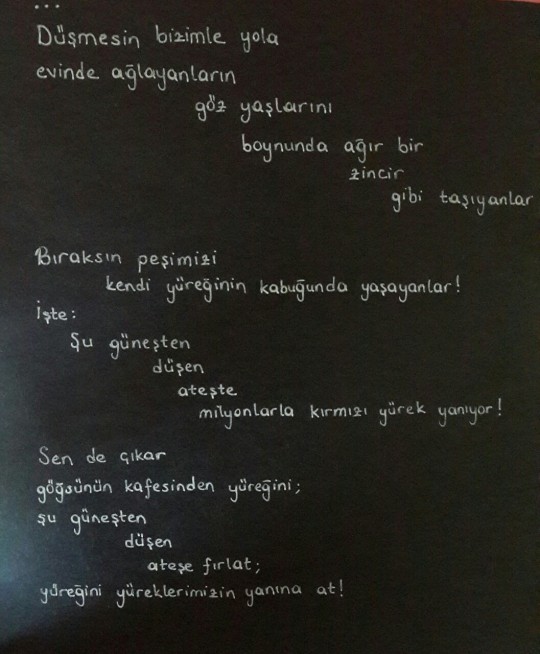 ...
Düşmesin bizimle yola
evinde ağlayanların
göz yaşlarını
boynunda ağır bir
zincir
gibi taşıyanlar
Bıraksın peşimizi
kendi yüreğinin kabuğunda yaşayanlar!
İşte:
Şu güneşten
düşen
ateşte
milyonlarla kırmızı yürek yanıyor!
Sen de çıkar
göğsünün kafesinden yüreğini;
şu güneşten
düşen
ateşe fırlat;
yüreğini yüreklerimizin yanına at!